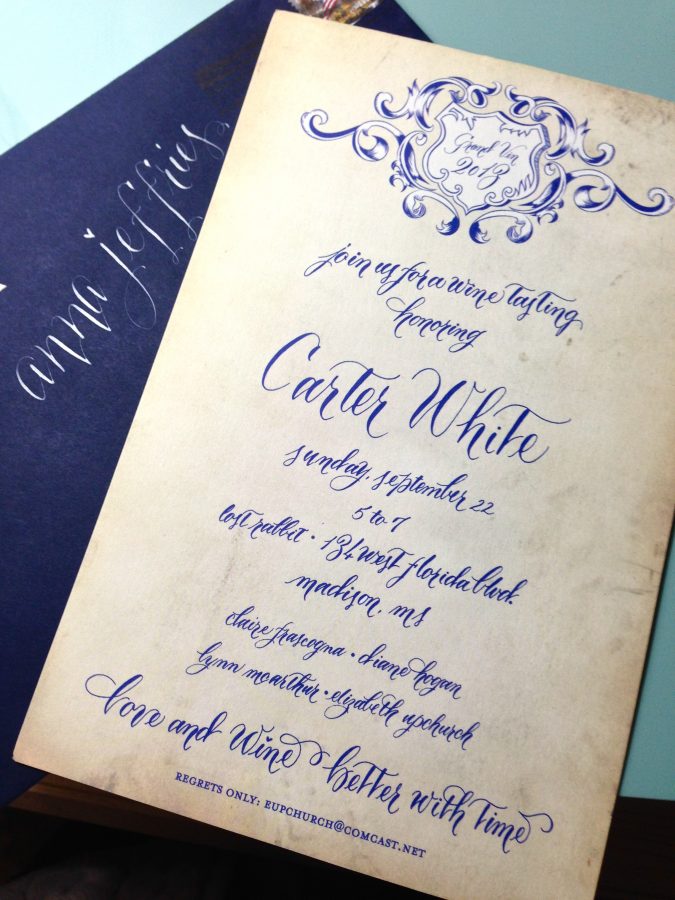 anna jeffries
Grand Vin
2013
join us for a wine tasting
honoring
Carter White
sunday, september 22
5 to 7
lost rabbit • 134 west florida blvd.
madison, ms
claire frascogna • diane hogan
lynn mcarthur • elizabeth upchurch
love and wine better with time
REGRETS ONLY: EUPCHURCH@COMCAST.NET